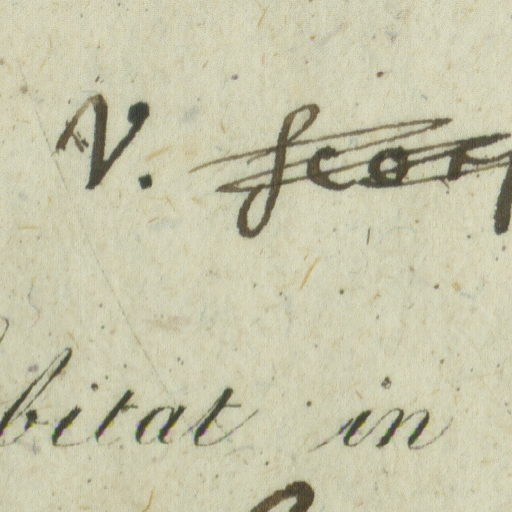 V. scorp
bitat in